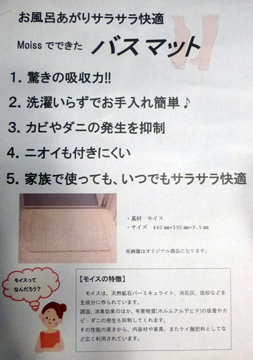 お風呂あがりサラサラ快適
Moiss でできた バスマット
1. 驚きの吸収力!!
2. 洗濯いらずでお手入れ簡単♪
3. カビやダニの発生を抑制
4. ニオイも付きにくい
5. 家族で使っても、いつでもサラサラ快適
・基材 モイス
・サイズ 440㎜×590㎜×9.5㎜
※画像はオリジナル商品になります。
モイスって
なんだろう?
【モイスの特徴】
モイスは、天然鉱石バーミキュライト、消石灰、珪砂などを
主成分に作られています。
調湿、消臭効果のほか、有害物質(ホルムアルデヒド)の吸着やカ
ビ・ダニの発生も抑制してくれます。
その性能の高さから、内装材や家具、またケイ酸肥料としてな
ど広く利用されています。